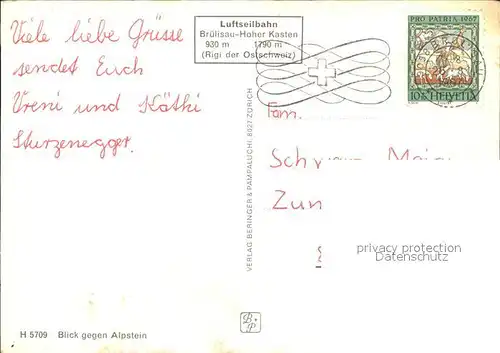 Viele liebe Grüsse
sendet Euch
Vreni und Käthi
Sturzenegger.
Luftseilbahn
Brülisau-Hoher Kasten
930 m 1790 m
(Rigi der Ostschweiz)
PRO PATRIA 1967
10+10 HELVETIA
Fam.
VERLAG BERINGER & PAMPALUCHI, 8027 ZÜRICH
privacy protection
Datenschutz
B+P
H 5709 Blick gegen Alpstein